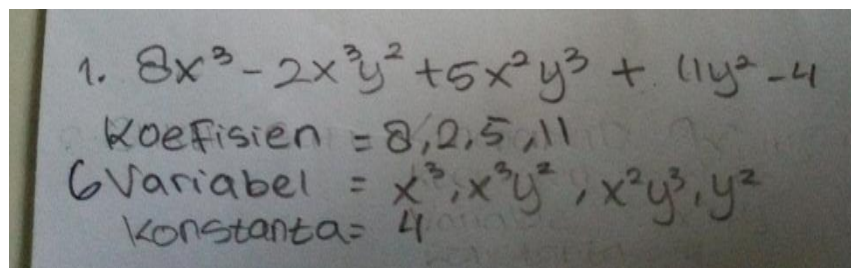 1. 8x³ - 2x³y² + 5x²y³ + 11y² - 4
Koefisien = 8, 2, 5, 11
6 Variabel = x³, x³y², x²y³, y²
Konstanta = 4